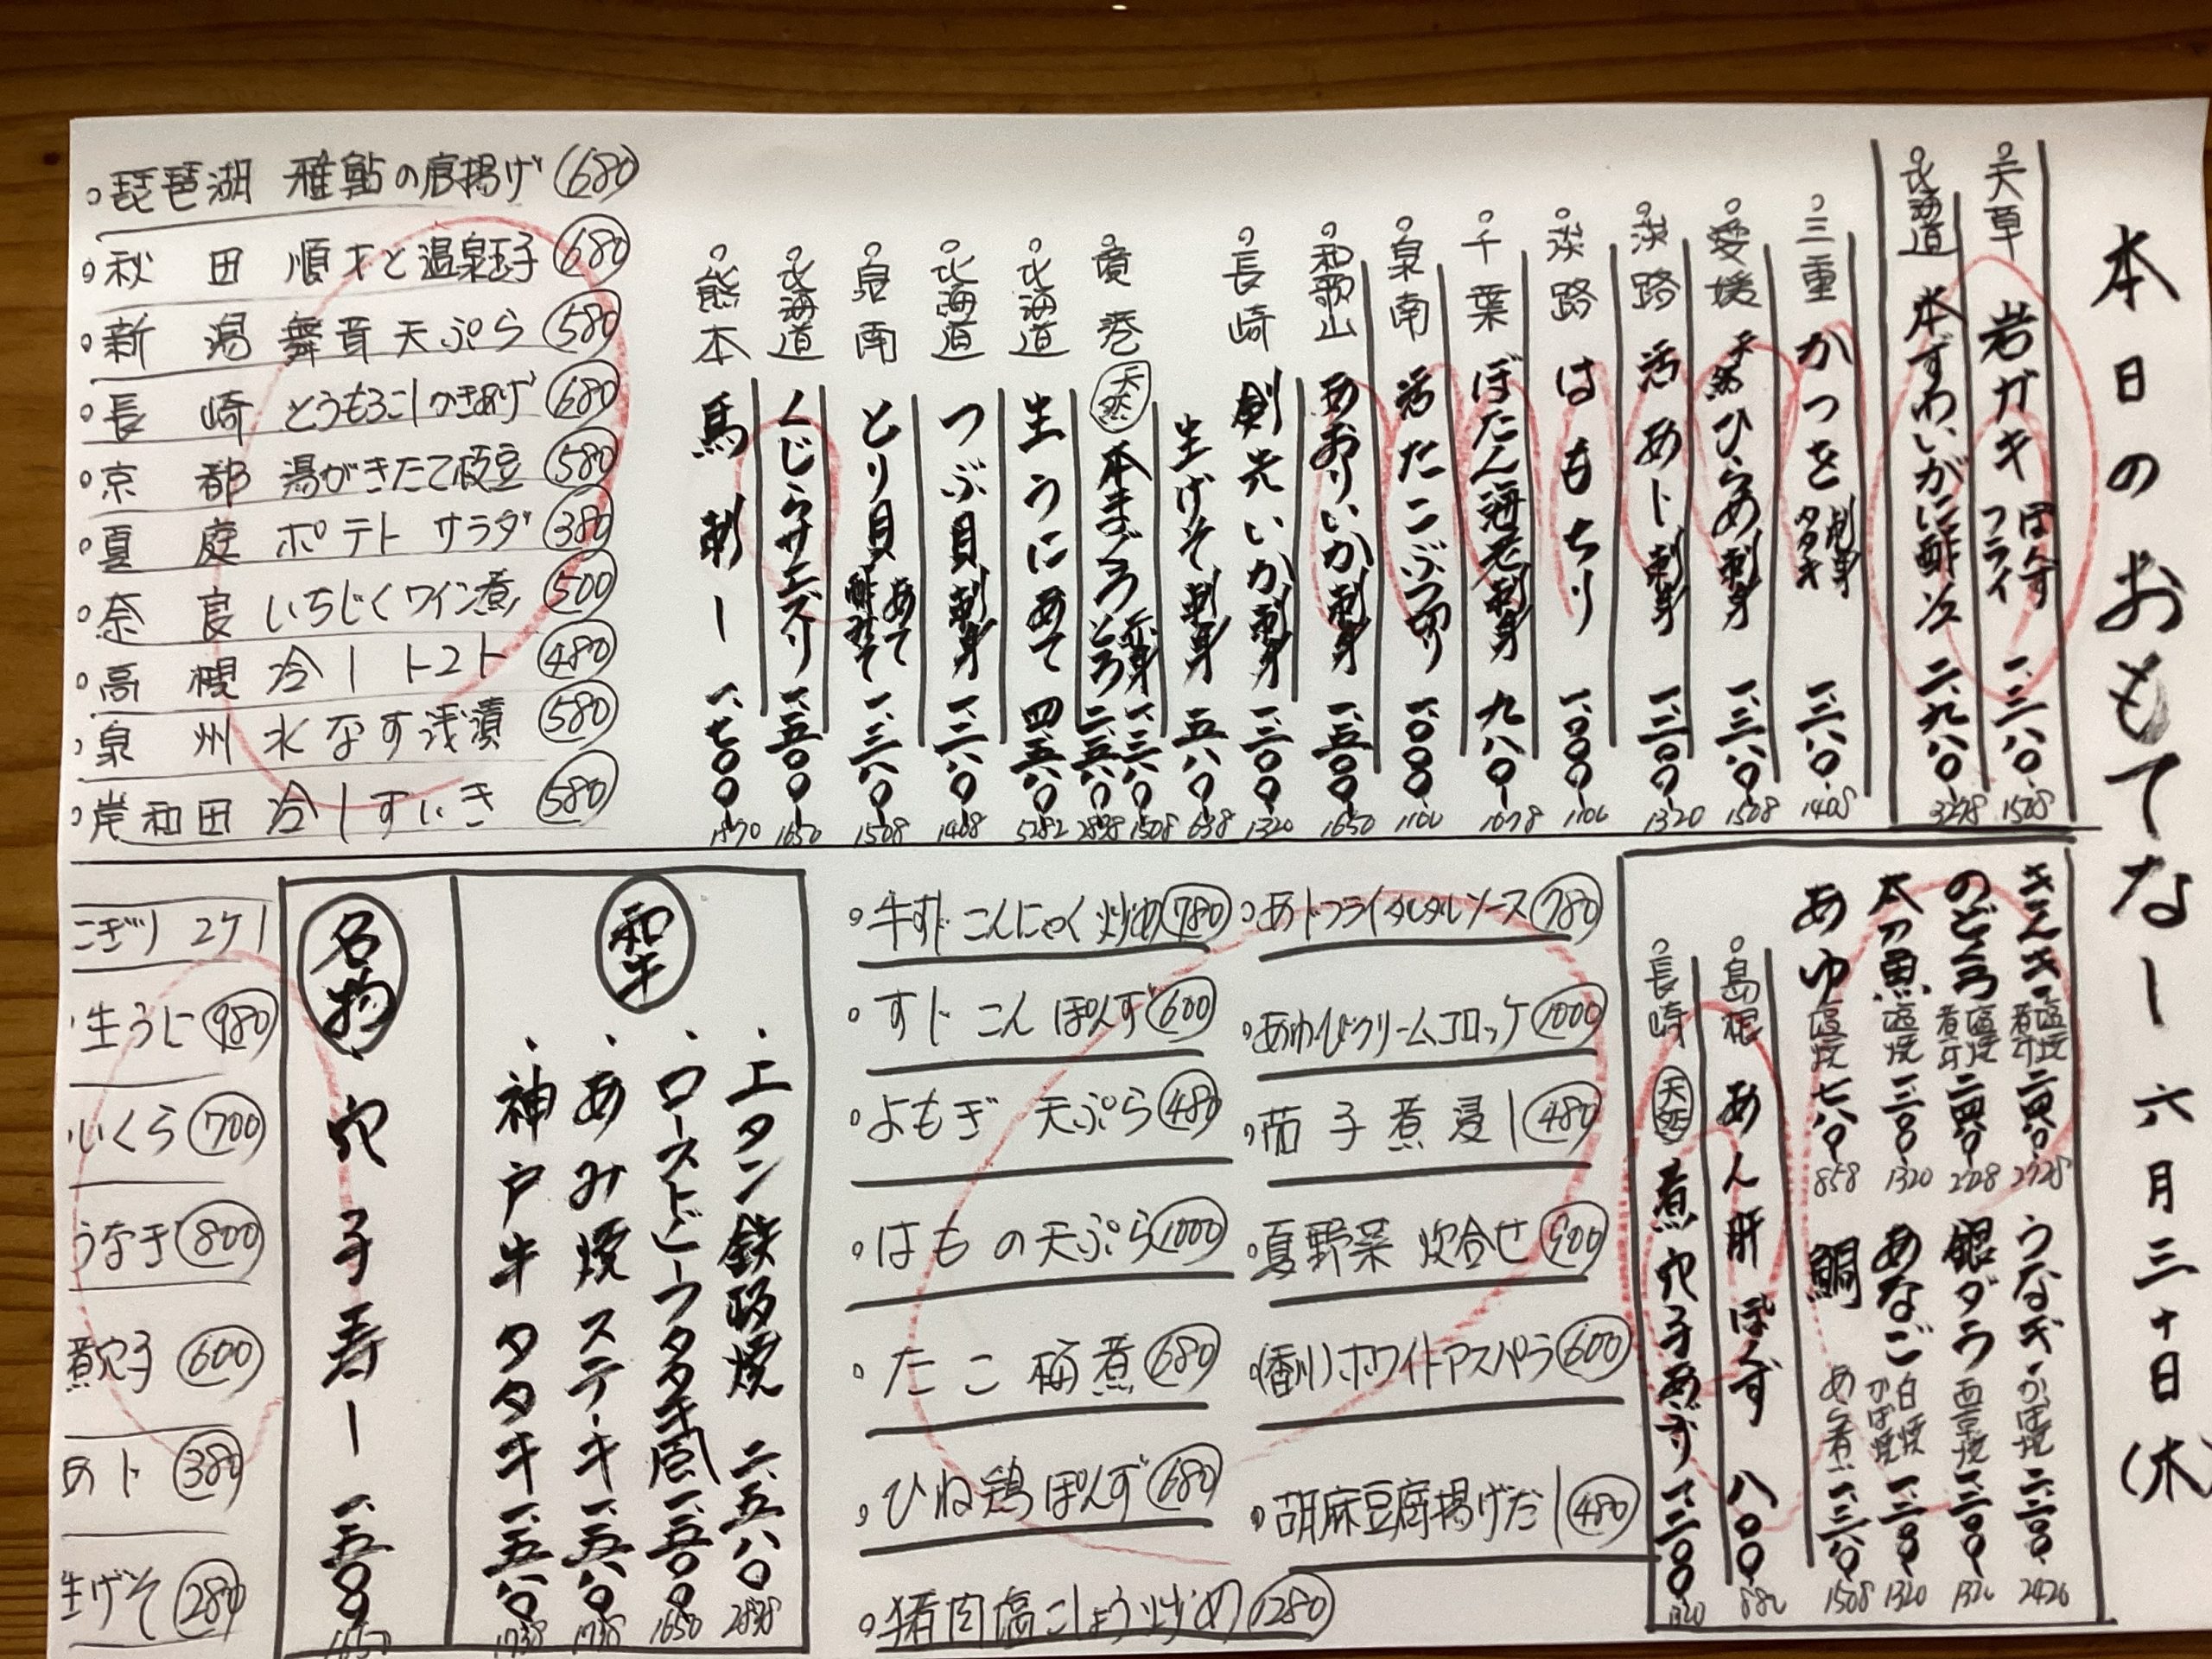 本日のおもてなし 六月三十日(木)
天草 岩ガキ ぽんず フライ 一、三八〇 1508
北海道 本ずわいがに酢 二、九八〇 3278
三重 かつを 刺身 タタキ 一、二八〇 1408
愛媛 天然 ひらめ刺身 一、三八〇 1508
淡路 活あじ刺身 一、二〇〇 1320
淡路 はもちり 一、〇〇〇 1100
千葉 ぼたん海老刺身 九八〇 1078
泉南 活たこぶつ切り 一、〇〇〇 1100
和歌山 あおりいか刺身 一、五〇〇 1650
長崎 剣先いか刺身 一、二〇〇 1320
生げそ刺身 五八〇 638
境港 天然 本まぐろ 赤身 一、三八〇 1508
とろ 二、五八〇 2838
北海道 生うにあて 四、五八〇
北海道 つぶ貝刺身 一、二八〇 1408
泉南 とり貝 あて 酢みそ 一、三八〇 1508
北海道 くじらサエズリ 一、五〇〇 1650
熊本 馬刺し 一、七〇〇 1870
琵琶湖 稚鮎の唐揚げ 680
秋田 順才と温泉玉子 680
新潟 舞茸天ぷら 580
長崎 とうもろこしかきあげ 680
京都 湯がきたて枝豆 580
夏庭 ポテトサラダ 380
奈良 いちじくワイン煮 500
高槻 冷しトマト 480
泉州 水なす浅漬 580
岸和田 冷しずいき 580
きんき 塩焼 煮付 二、四八〇 2728
のどぐろ 塩焼 煮付 二、四八〇
太刀魚 塩焼 一、二〇〇 1320
あゆ 塩焼 七八〇 858
うなぎ かば焼 二、二〇〇
銀ダラ 西京焼 一、二〇〇 1320
あなご 白焼 かば焼 一、二〇〇 1320
鯛 あら煮 一、三八〇 1508
島根 あん肝ぽんず 八〇〇 880
長崎 天然 煮穴子あぶり 一、二〇〇 1320
あじフライタルタルソース 780
あわびクリームコロッケ 1000
茄子煮浸し 480
夏野菜炊合せ 900
(香川)ホワイトアスパラ 600
胡麻豆腐揚げだし 480
牛すじこんにゃく炒め 780
すじこんぽんず 600
よもぎ天ぷら 480
はもの天ぷら 1000
たこ梅煮 680
ひね鶏ぽんず 680
猪肉塩こしょう炒め 1280
和牛
上タン鉄板焼 二、五八〇 2838
ローストビーフタタキ風 一、五〇〇 1650
あみ焼ステーキ 一、五八〇 1738
神戸牛タタキ 一、五八〇 1738
名物 穴子寿し 一、五〇〇 1650
にぎり 2ケ
生うに 980
いくら 700
うなぎ 800
煮穴子 600
あじ 380
生げそ 280